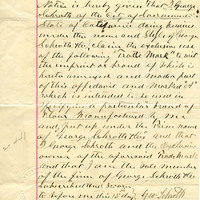 Notice is hereby given that I George
Schroth of the City of Sacramento
State of California doing business
under the name and style of George
Schroth &c, claim the exclusive use
of the following Trade Mark to wit
the imprint or brand of which is
hereto annexed and made part
of this affidavit and marked A
which is intended to be used to
a particular brand of
Flour Manufactured by me
and, put up under the Firm name
of George Schroth &c and that
I George Schroth am the
owner of the aforesaid Trade Mark
and that I am the sole member
of the firm of George Schroth &c
Subscribed and Sworn
to before me this day Geo Schroth